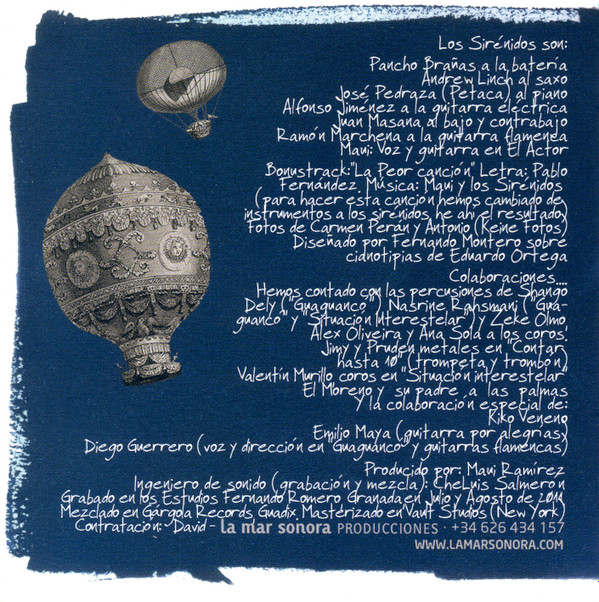 Los Sirénidos son:
Pancho Brañas a la batería
Andrew Linch al saxo
José Pedraza (Petaca) al piano
Alfonso Jiménez a la guitarra eléctrica
Juan Masana al bajo y contrabajo
Ramón Marchena a la guitarra flamenca
Maui: Voz y guitarra en El Actor
Bonustrack:"La Peor canción" Letra: Pablo
Fernández. Música: Maui y los Sirénidos
(para hacer esta canción hemos cambiado de
instrumentos a los sirénidos he ahí el resultado)
Fotos de Carmen Perán y Antonio (Keine Fotos)
Diseñado por Fernando Montero sobre
cidnotipias de Eduardo Ortega
Colaboraciones....
Hemos contado con las percusiones de Shango
Dely ("Guaguanco") Nasrine Rahsmani ("Gua-
guanco" y "Situación Interestelar") y Zeke Olmo
Alex Oliveira y Ana Sola a los coros.
Jimy y Pruden metales en "Contar
hasta 10" (trompeta y trombón)
Valentín Murillo coros en "Situación interestelar"
El Moreno y su padre a las palmas
Y la colaboración especial de:
Kiko Veneno
Emilio Maya (guitarra por alegrías)
Diego Guerrero (voz y dirección en "Guaguanco" y guitarras flamencas)
Producido por: Maui Ramírez
Ingeniero de sonido (grabación y mezcla): CheLuis Salmerón
Grabado en los Estudios Fernando Romero Granada en Julio y Agosto de 2011
Mezclado en Gárgola Records Guadix. Masterizado en Vault Studios (New York)
Contratación: -David- la mar sonora PRODUCCIONES · +34 626 434 157
WWW.LAMARSONORA.COM